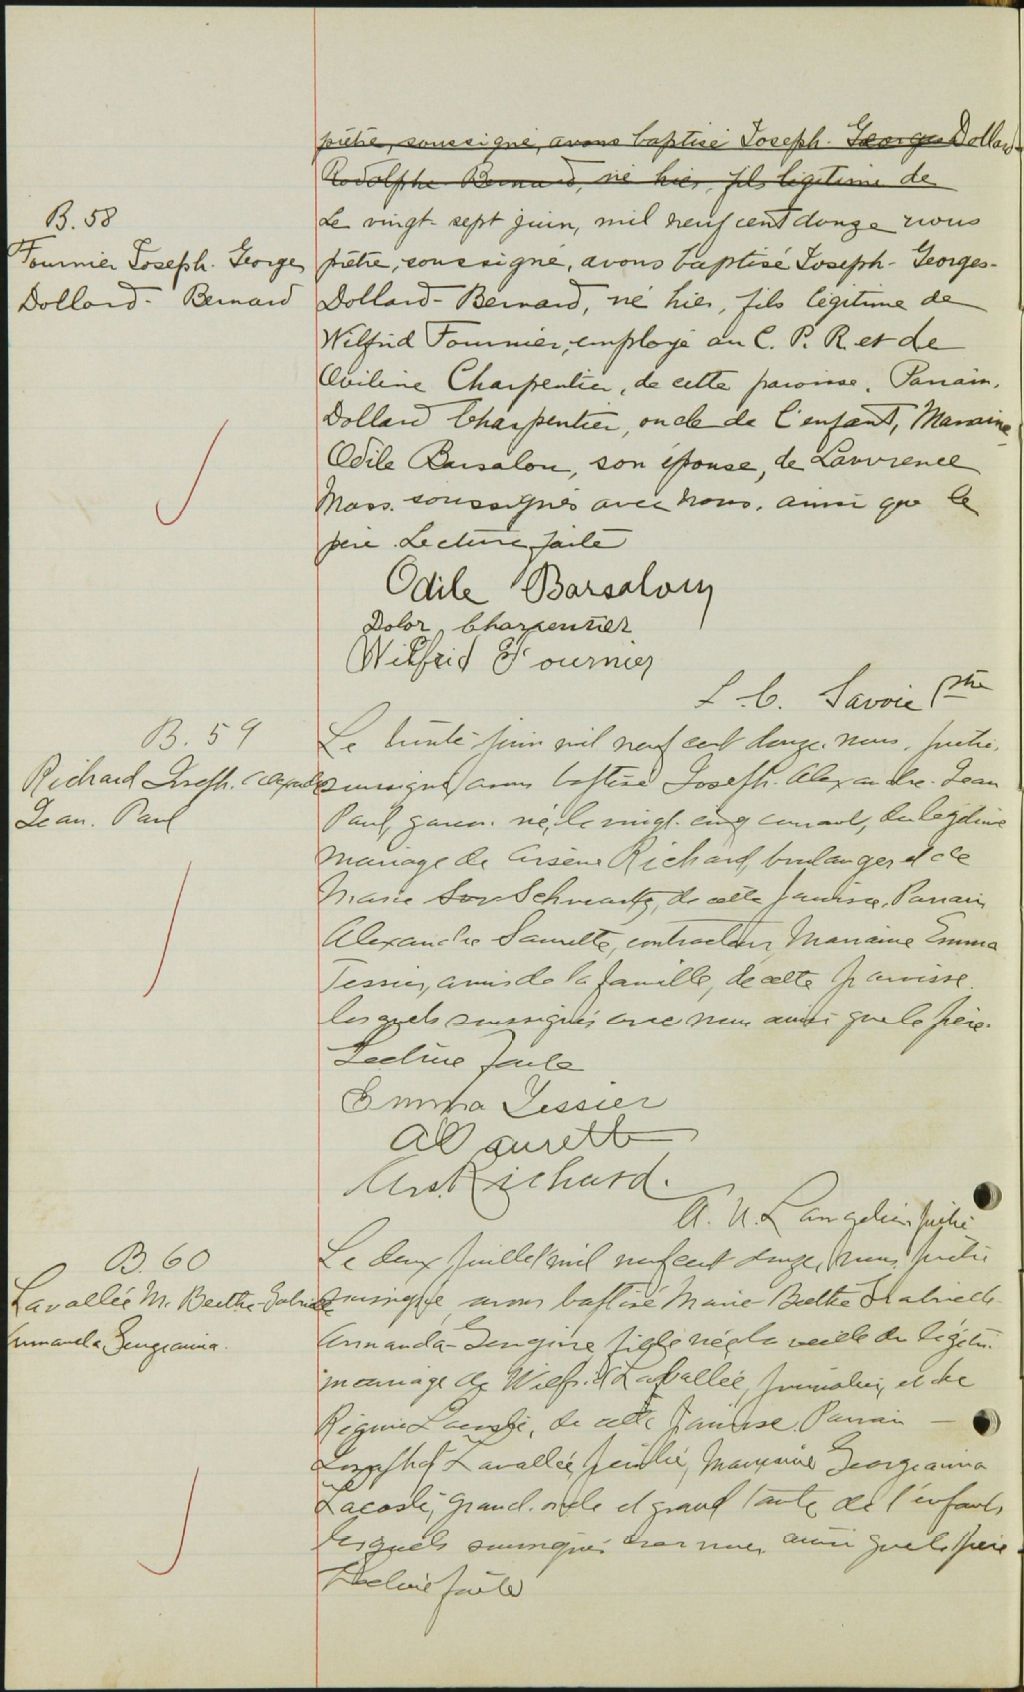 prêtre, soussigné, avons baptisé Joseph- Georges Dollard-
Rodolphe Bernard, né hier, fils légitime de
B. 58
Fournier Joseph- Georges
Dollard- Bernard
Le vingt-sept juin, mil neuf cent douze nous
prêtre, soussigné, avons baptisé Joseph- Georges-
Dollard- Bernard, né hier, fils légitime de
Wilfrid Fournier, employé au C. P. R. et de
Oviline Charpentier, de cette paroisse. Parrain,
Dollard Charpentier, oncle de l'enfant, Marraine
Odile Barsalou, son épouse, de Lawrence
Mass. soussignés avec nous, ainsi que le
père. Lecture faite
Odile Barsalou
Dolor Charpentier
Wilfrid Fournier
L. C. Savoie ptre
B. 59
Richard Joseph. Alexandre
Jean. Paul
Le trente juin mil neuf cent douze, nous, prêtre,
soussigné, avons baptisé Joseph. Alexandre. Jean
Paul, garçon né le vingt-cinq courant, du légitime
mariage de Arsène Richard, boulanger et de
Marie Schwartz, de cette paroisse, Parrain
Alexandre Saurette, contracteur, Marraine Emma
Tessier, amis de la famille, de cette paroisse.
lesquels soussignés avec nous ainsi que le père.
Lecture faite
Emma Tessier
Al Saurette
Ars. Richard.
A. U. Langelier, prêtre
B. 60
Lavallée M. Berthe-Gabrielle
Armanda Georgianna.
Le deux juillet mil neuf cent douze, nous, prêtre
soussigné avons baptisé Marie Berthe Gabrielle
Armanda- fille née la veille du légiti.
mariage de Wilfrid Lavallée, et de
Lacoste, de cette paroisse. Parrain —
Joseph Lavallée, peintre, Marraine Georgianna
Lacoste, grand. oncle et grand tante de l'enfant,
lesquels soussignés avec nous, ainsi que le père.
Lecture faite